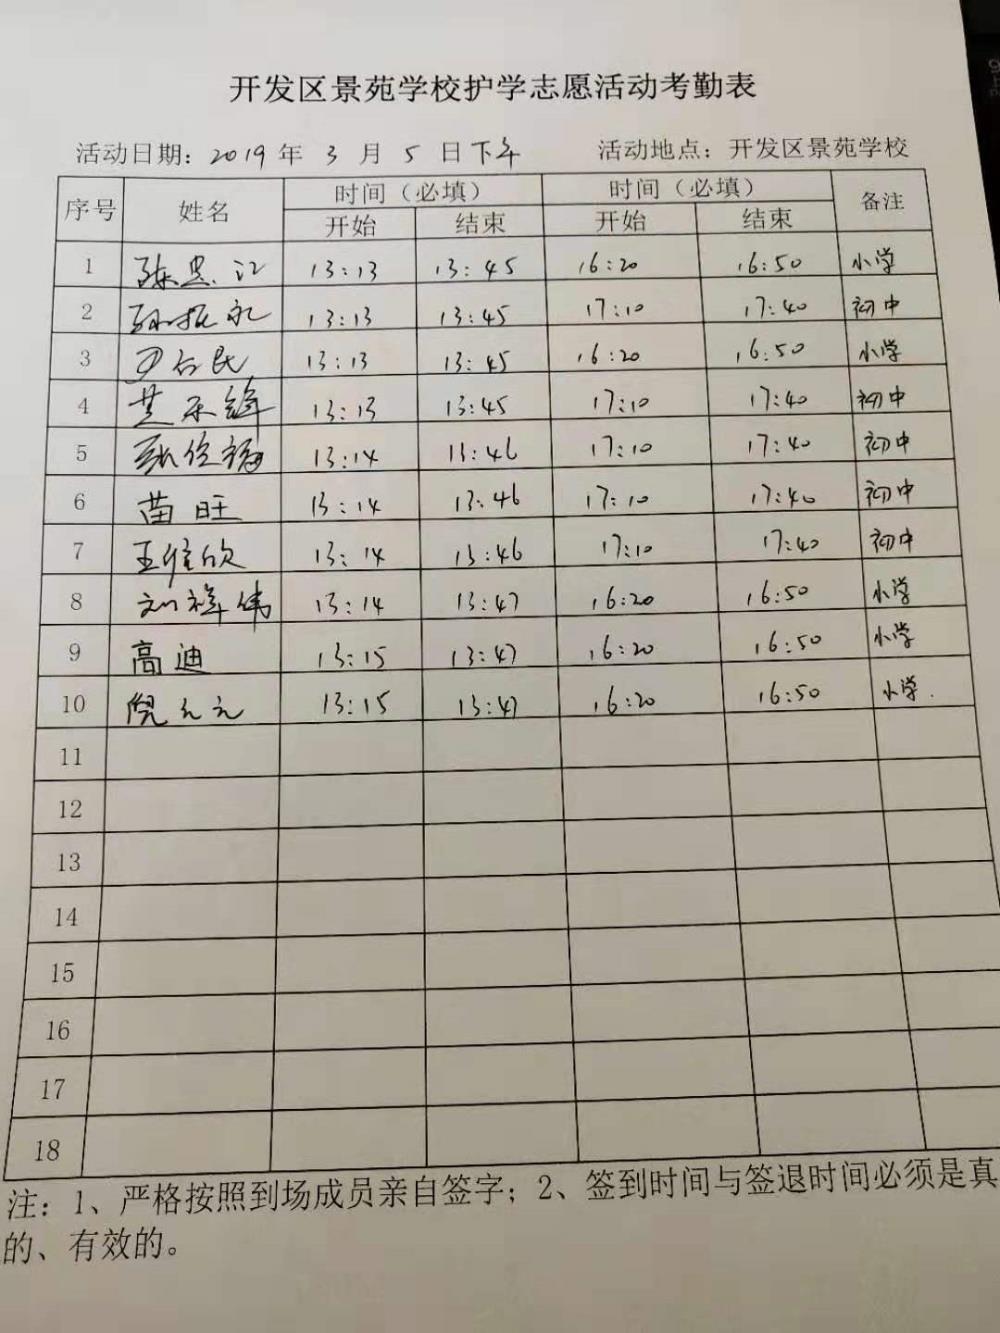 开发区景苑学校护学志愿活动考勤表
活动日期: 2019 年 3 月 5 日下午 活动地点: 开发区景苑学校
序号 姓名 时间（必填） 时间（必填） 备注
开始 结束 开始 结束
1 13:13 13:45 16:20 16:50 小学
2 孙振礼 13:13 13:45 17:10 17:40 初中
3 13:13 13:45 16:20 16:50 小学
4 13:13 13:45 17:10 17:40 初中
5 13:14 13:46 17:10 17:40 初中
6 苗旺 13:14 13:46 17:10 17:40 初中
7 王维欣 13:14 13:46 17:10 17:40 初中
8 刘祥伟 13:14 13:47 16:20 16:50 小学
9 高迪 13:15 13:47 16:20 16:50 小学
10 倪元元 13:15 13:47 16:20 16:50 小学.
11
12
13
14
15
16
17
18
注: 1、严格按照到场成员亲自签字; 2、签到时间与签退时间必须是真
的、有效的。